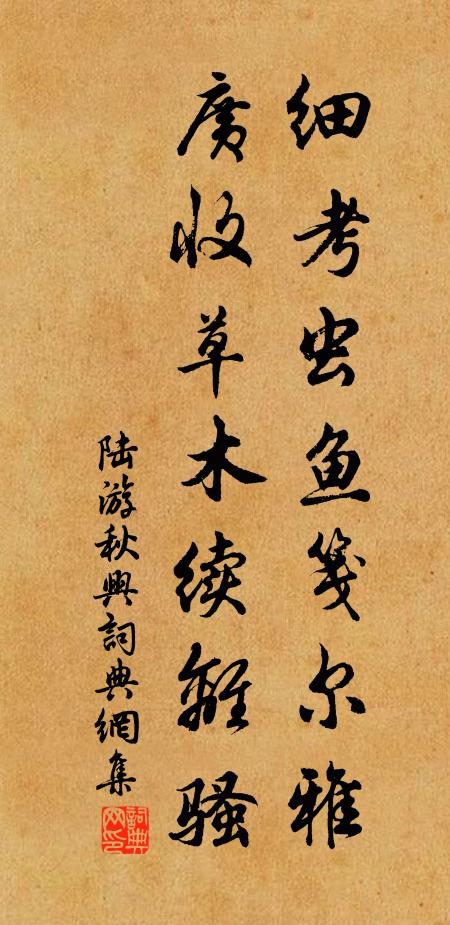 细考虫鱼笺尔雅
广收草木续离骚
陆游秋兴詞典網集
詞典
网印